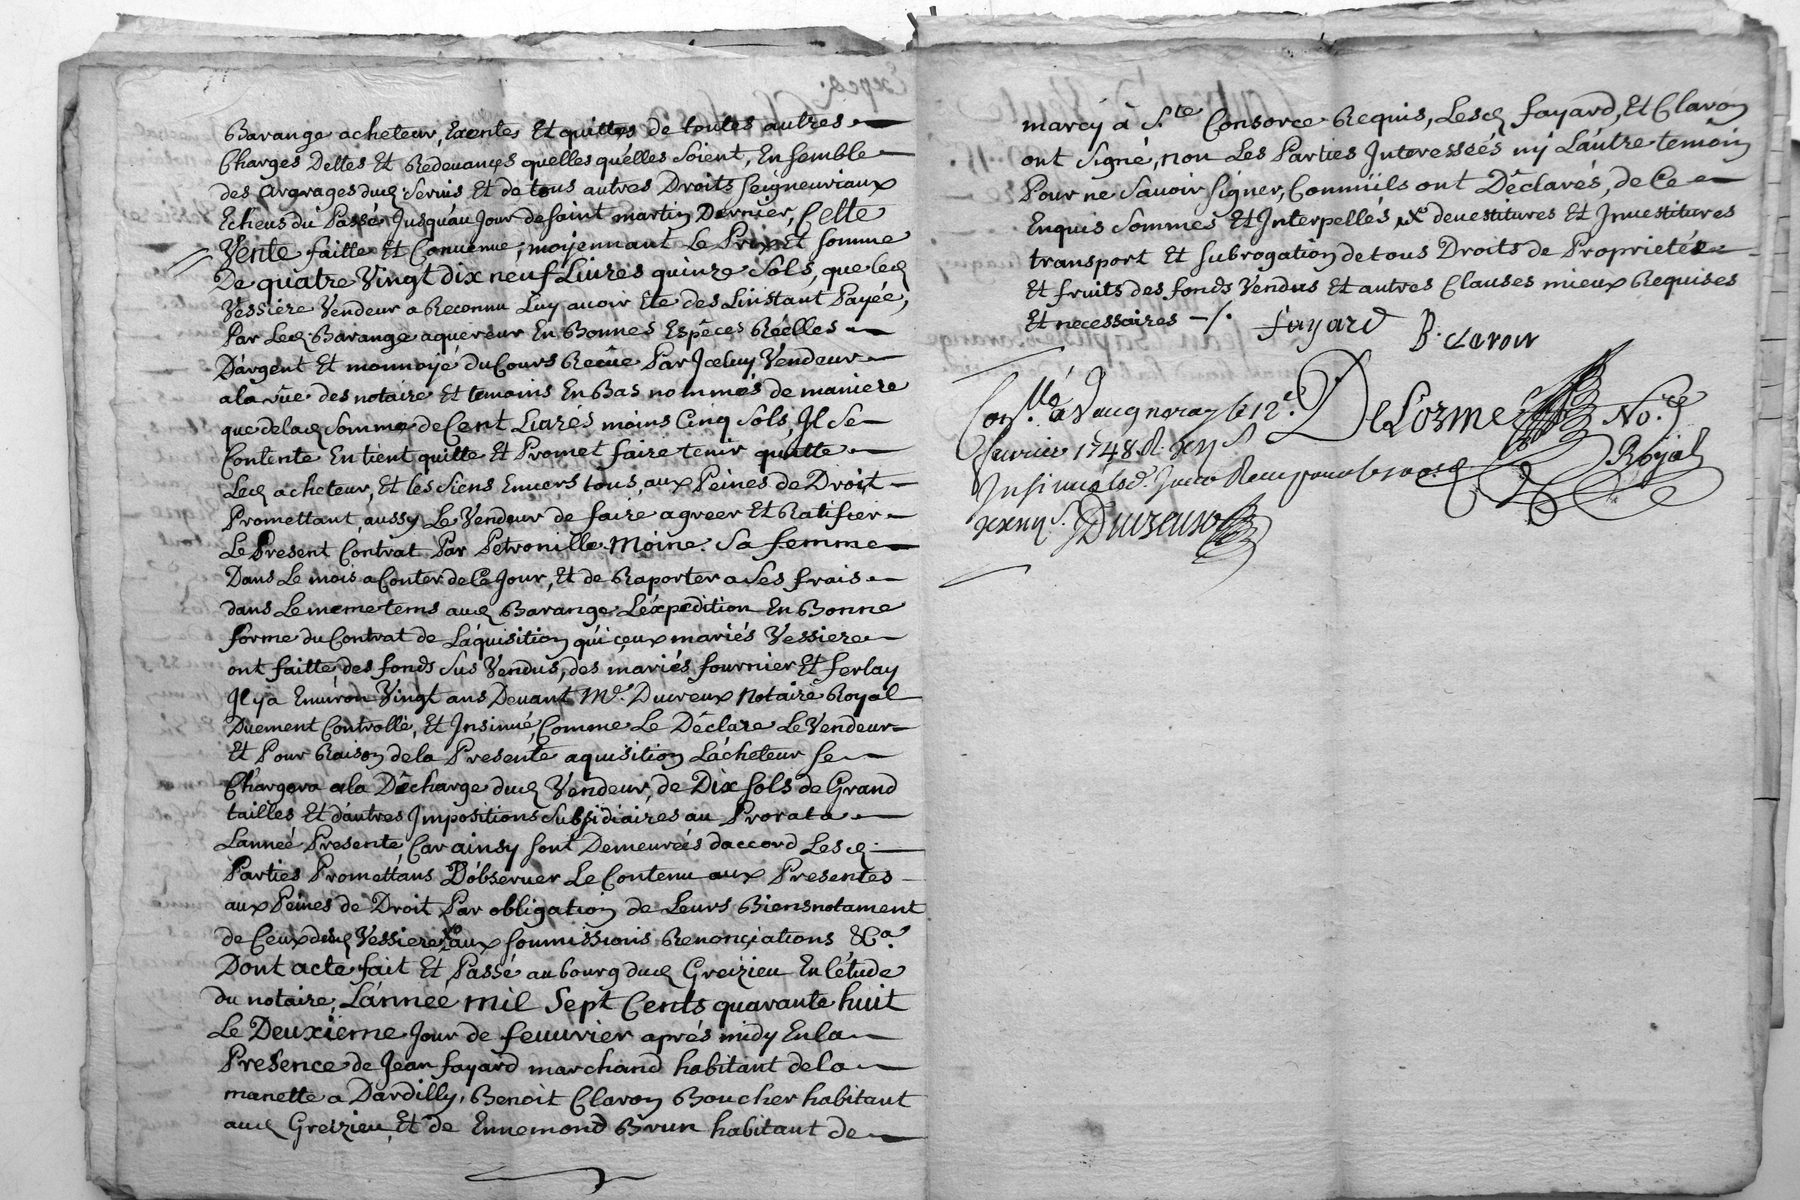 Barange acheteur, Exentes Et quittes de toutes autres
Charges Dettes Et Redevances quelles qu'elles Soient, Ensemble
des Arrerages dud. Servis Et de tous autres Droits Seigneuriaux
Echeus du Passé Jusquau Jour de Saint martin Dernier, Cette
Vente faitte Et Convenue, moyennant Le Prix Et Somme
De quatre Vingt dix neuf Livres quinze Sols, que led.
Vessiere Vendeur a Reconnu Luy avoir Eté dés L'instant Payée,
Par Led. Barange aquereur En Bonnes Espêces Réelles
D'argent Et monnoyé du Cours Recüe Par Jceluy Vendeur
a la vüe des notaire Et temoins En Bas nommés de maniere
que de lad. Somme de Cent Livres moins Cinq Sols, Jl Se
Contente En tient quitte Et Promet faire tenir quitte
Led. acheteur, Et les Siens Envers tous, aux Peines de Droit
Promettant aussy Le Vendeur de faire agréer Et Ratifier
Le Present Contrat Par Petronille Moine Sa femme
Dans Le mois a Conter de Ce Jour, Et de Raporter a Ses frais
dans Le meme tems aud. Barange L'éxpedition En Bonne
forme du Contrat de L'aquisition qui ceux mariés Vessiere
ont faitte, des fonds Sus Vendus, des mariés fournier Et ferlay
Jl y a Environ Vingt ans Devant Me. Ducreux Notaire Royal
Duement Controllé, Et Jnsinué, Comme Le Déclare Le Vendeur
Et Pour Raison de la Presente aquisition L'acheteur Se
Chargera a la Décharge dud. Vendeur, de Dix Sols de Grand
tailles Et d'autres Jmpositions Subsidiaires au Prorata
L'anneé Presente Car ainsy Sont Demeurées d'accord Lesd.
Parties Promettans D'observer Le Contenu aux Presentes
aux Peines de Droit Par obligation de Leurs Biens notament
de Ceux dud. Vessiere aux Soumissions Renonciations &Ca.
Dont acte fait Et Passé au bourg dud. Greizieu En l'étude
du notaire, L'annee mil Sept Cents quarante huit
Le Deuxieme Jour de fevuvrier aprés midy En la
Presence de Jean fayard marchand habitant de la
manette a Dardilly, Benoit Claron Boucher habitant
aud. Greizieu Et de Ennemond Brun habitant de
marcy à Ste. Consorce Requis, Lesd. fayard, Et Claron
ont Signé, non Les Parties Jnteresseés ny L'autre temoin
Pour ne Savoir Signer, Comm'ils ont Déclarés, de Ce
Enquis Sommés Et Jnterpellés, devestitures Et Jnvestitures
transport Et Subrogation de tous Droits de Proprietés
Et fruits des fonds Vendus Et autres Clauses mieux Requises
Et necessaires
fayard B. claron
Conllé. a Vaugneray le 12e. DeLorme No.re
fevrier 1748 Royal